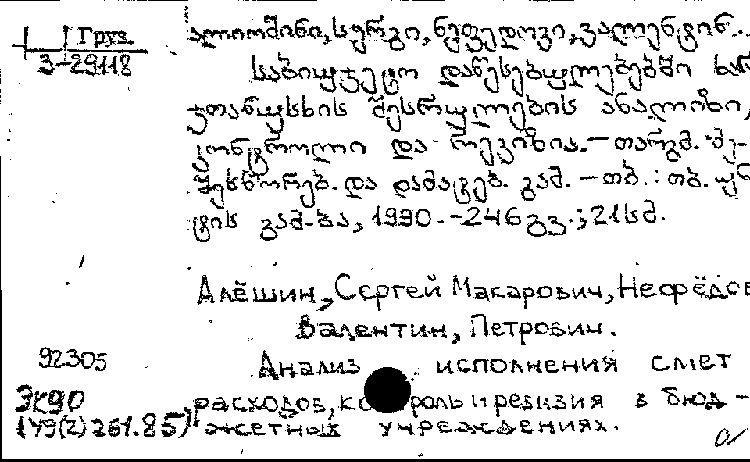 Груз.
3-29118
ალიოშინი, სერგი, ნეფედოვი, ვალენტინ...
საბიუჯეტო დაწესებულებებში ხარ
ჯთანუსხის შესრულების ანალიზი,
კონტროლი და რევიზია. – თარგმ. მე-
შესწორებ. და დამატებ. გამ. – თბ. : თბ. უნ
ტის გამ-ბა, 1990. – 246 გვ. ; 21 სმ.
Алёшин, Сергей Макарович, Нефёдов
Валентин, Петрович.
92305
Анализ исполнения смет
ЭК90
расходов, контроль и ревизия в бюд-
(У9(2)261.85)
жетных учреждениях.